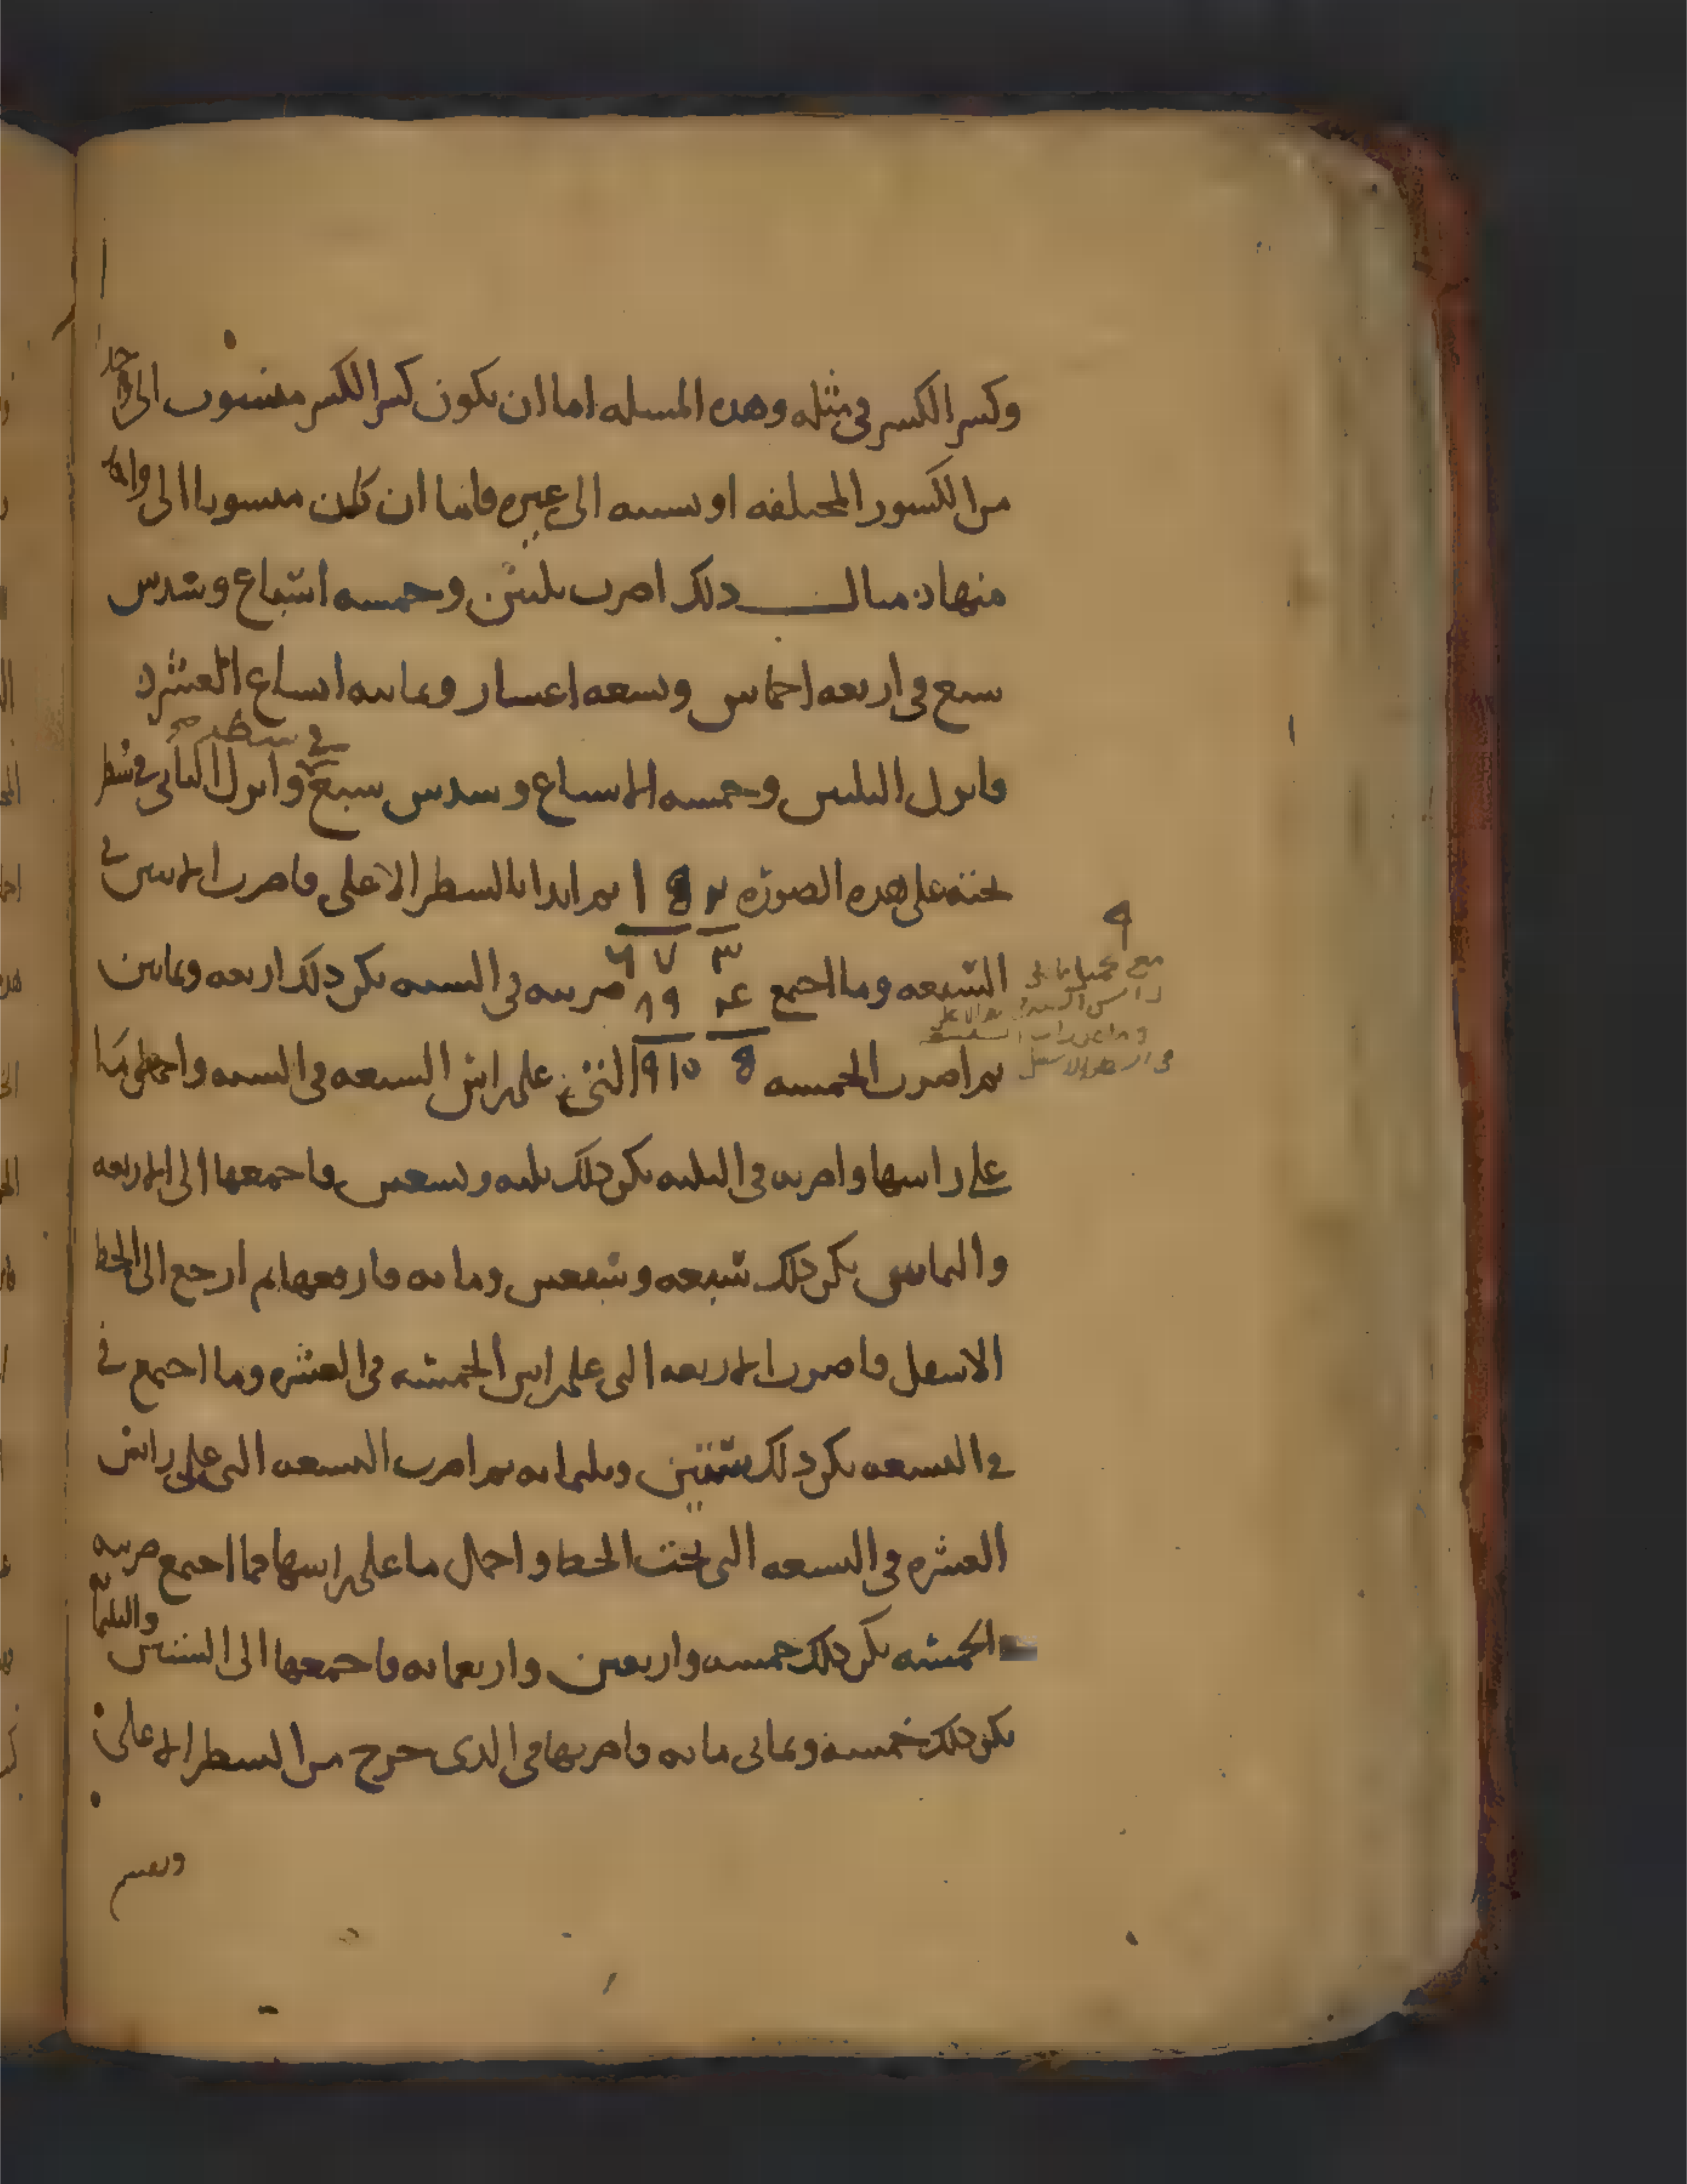 وكسر الكسر في مثله وهذه المسله اما ان يكون كسر الكسر منسوب الى احد
من الكسور المختلفه او نسبه الى غيره فاما ان كان منسوبا الى واحد
منها مثال ذلك اضرب ثلثين وخمسه اسباع وسدس
سبع في اربعه اخماس وتسعه اعشار وثمانيه اتساع العشر
في سطر صح
فانزل الثلثين وخمسه الاسباع وسدس سبع وانزل الثاني في سطر
تحته على هذه الصوره ٢ 8 ١ ثم ابدا بالسطر الاعلى فاضرب الاثنين في
٣ ٧ ٦
السبعه وما اجتمع ٤ ٩ ٨ ضربته في السته يكن ذلك اربعه وثمانين
ثم اضرب الخمسه 8 ١٥ ٩ التي على راس السبعه في السته واحمل ما
على راسها واضربه في الثلثه يكن ذلك ثلثه وتسعين فاجمعها الى الاربعه
والثمانين يكن ذلك سبعه وسبعين ومايه فارفعها ثم ارجع الى الخط
الاسفل فاضرب الاربعه التي على راس الخمسه في العشره وما اجتمع في
في التسعه يكن ذلك ستين وثلثمايه ثم اضرب التسعه التي على راس
العشره في التسعه التي تحت الخط واحمل ما على راسها فما اجتمع ضربته
الخمسه يكن ذلك خمسه واربعين واربعمايه فاجمعها الى الستين والثلثمايه
يكن ذلك خمسه وثماني مايه فاضربها في الذي خرج من السطر الاعلى
وتقسم